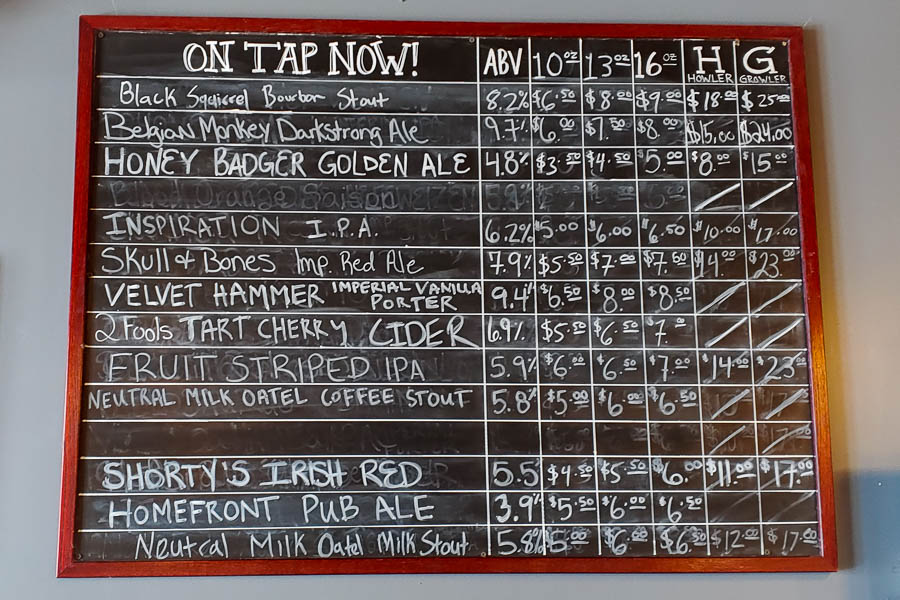 ON TAP NOW! ABV 10oz 13oz 16oz H HOWLER G GROWLER
Black Squirrel Bourbon Stout 8.2% $6.50 $8.00 $9.00 $18.00 $25.00
Belgian Monkey Darkstrong Ale 9.7% $6.00 $7.50 $8.00 $15.00 $24.00
HONEY BADGER GOLDEN ALE 4.8% $3.50 $4.50 $5.00 $8.00 $15.00
Orange Saison 5.9%
INSPIRATION I.P.A. 6.2% $5.00 $6.00 $6.50 $10.00 $17.00
Skull & Bones Imp. Red Ale 7.9% $5.50 $7.00 $7.50 $14.00 $23.00
VELVET HAMMER IMPERIAL VANILLA PORTER 9.4% $6.50 $8.00 $8.50
2 Fools TART CHERRY CIDER 6.9% $5.50 $6.50 $7.00
FRUIT STRIPED IPA 5.9% $6.00 $6.50 $7.00 $14.00 $23.00
NEUTRAL MILK OATEL COFFEE STOUT 5.8% $5.00 $6.00 $6.50
SHORTY'S IRISH RED 5.5 $4.50 $5.50 $6.00 $11.00 $17.00
HOMEFRONT PUB ALE 3.9% $5.50 $6.00 $6.50
Neutral Milk Oatel Milk Stout 5.8% $5.00 $6.00 $6.50 $12.00 $17.00